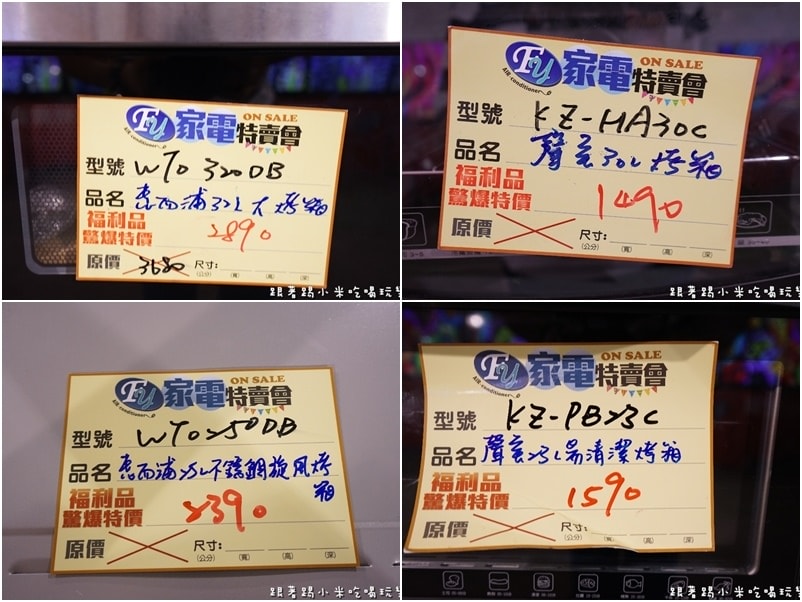 FU 家電特賣會 ON SALE
AIR conditioner
型號 WTO 320DB
品名 惠而浦32L大烤箱
福利品
驚爆特價 2890
原價 3680 尺寸:
(公分) (寬) (高) (深)
跟著踢小米吃喝玩樂
FU 家電特賣會 ON SALE
AIR conditioner
型號 KZ-HA30C
品名 聲寶30L烤箱
福利品
驚爆特價 1490
原價 尺寸:
(公分) (寬) (高) (深)
跟著踢小米吃喝玩樂
FU 家電特賣會 ON SALE
AIR conditioner
型號 WTO250DB
品名 惠而浦25L不鏽鋼旋風烤
箱
福利品
驚爆特價 2390
原價 尺寸:
(公分) (寬) (高) (深)
跟著踢小米吃喝玩樂
FU 家電特賣會 ON SALE
AIR conditioner
型號 KZ-PB23C
品名 聲寶23L易清潔烤箱
福利品
驚爆特價 1590
原價 尺寸:
(公分) (寬) (高) (深)
跟著踢小米吃喝玩樂